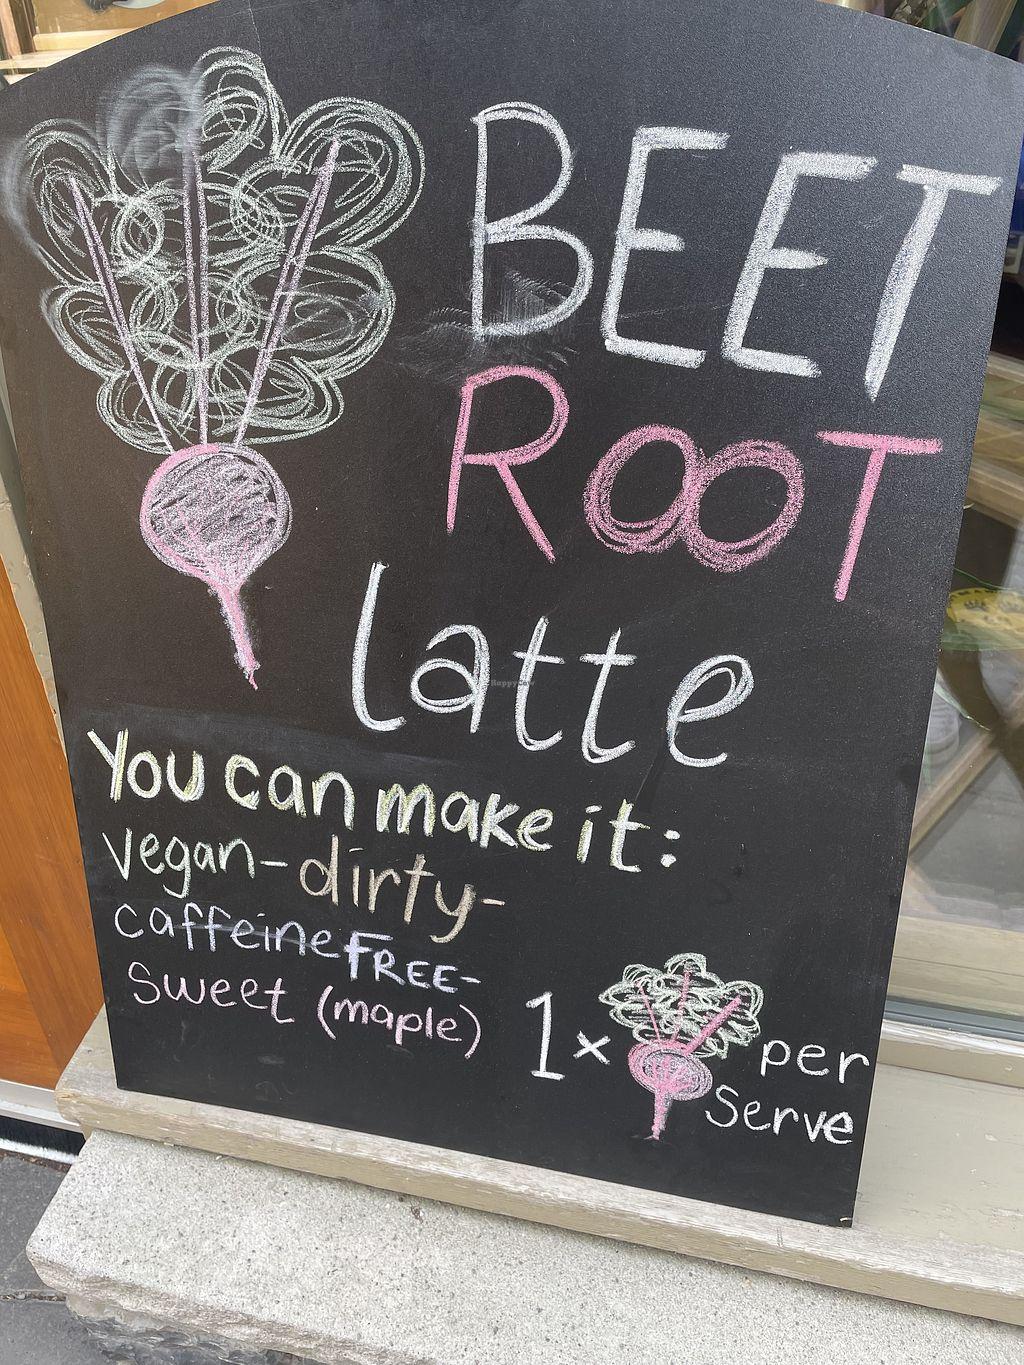 BEET
ROOT
latte
HappyCow
You can make it:
vegan-dirty-
caffeine FREE-
sweet (maple)
1x per
serve